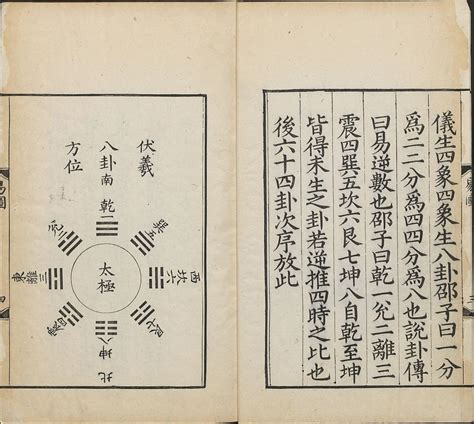 儀生四象四象生八卦邵子曰一分
為二二分為四四分為八也說卦傳
曰易逆數也邵子曰乾一兌二離三
震四巽五坎六艮七坤八自乾至坤
皆得未生之卦若逆推四時之比也
後六十四卦次序放此
易圖
三
伏羲
八卦
方位
南
乾一
兌二
巽五
東
離三
太極
坎六
西
震四
艮七
坤八
北
易圖
四